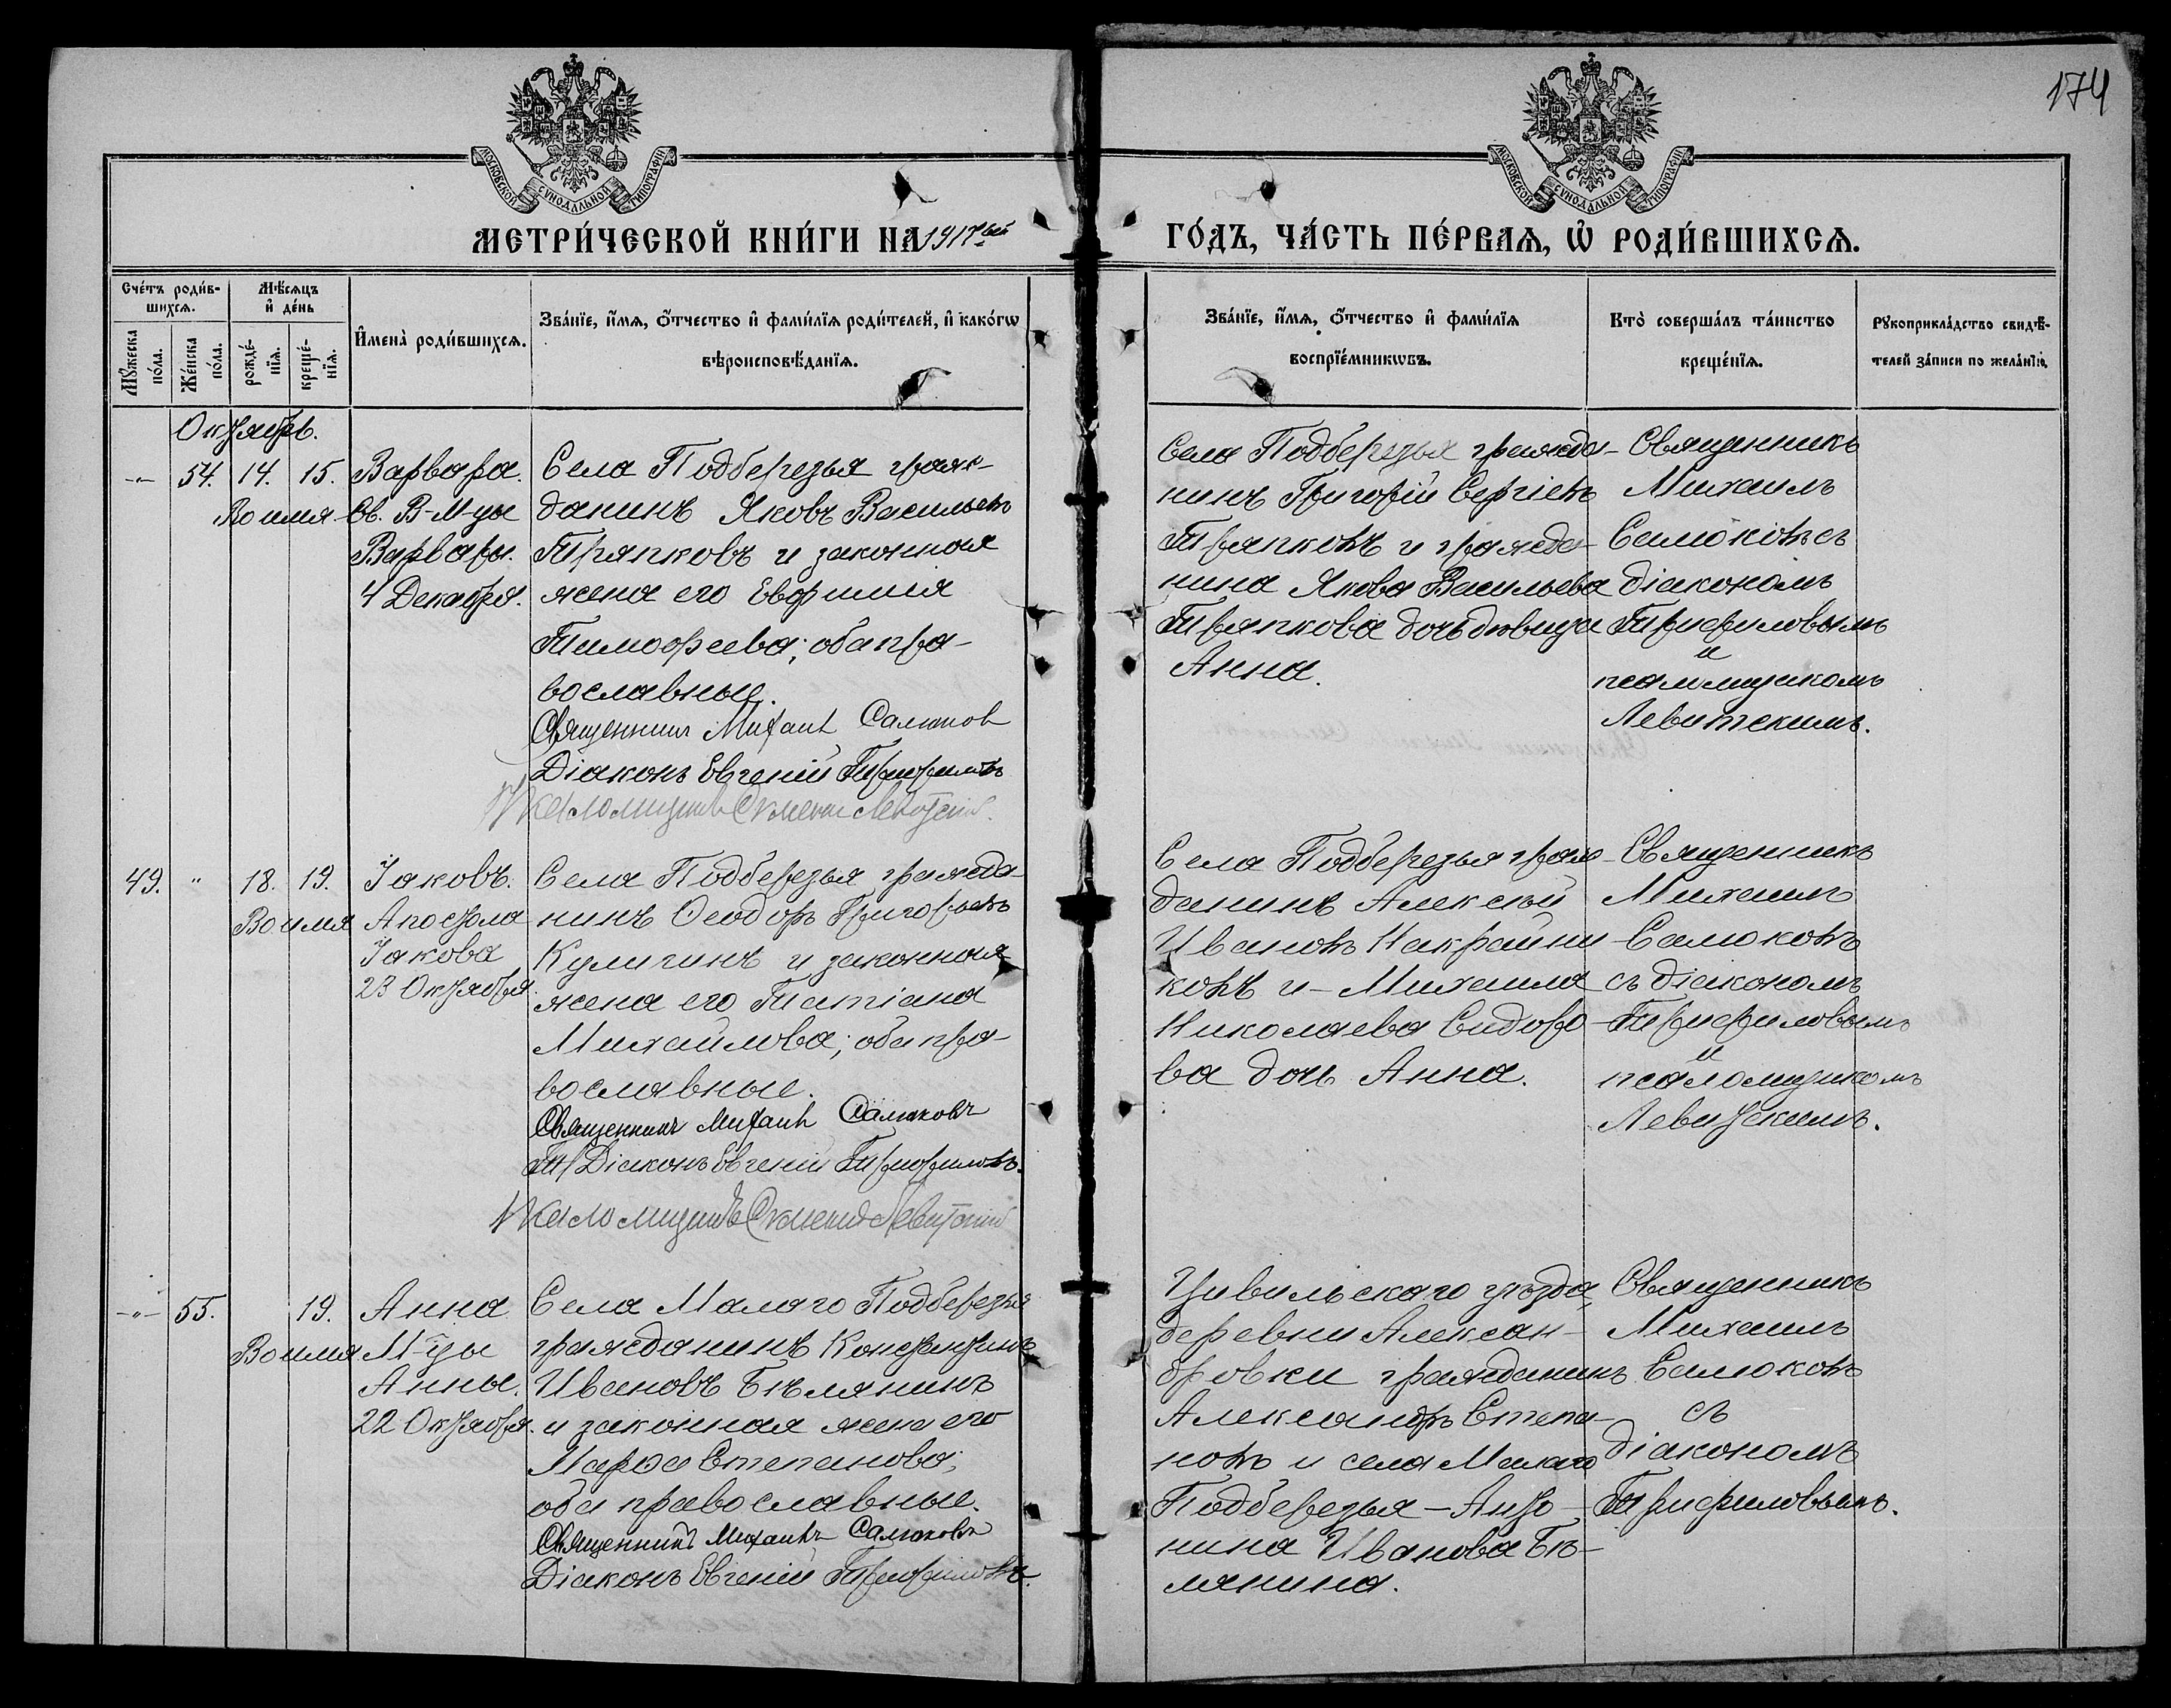 174
МОСКОВСКОЙ СѴНОДАЛЬНОЙ ТИПОГРАФІИ
МОСКОВСКОЙ СѴНОДАЛЬНОЙ ТИПОГРАФІИ
МЕТРИ́ЧЕСКОЙ КНИ́ГИ НА 1917ый
ГО́ДЪ, ЧА́СТЬ ПЕ́РВАѦ, Ѡ҆ РОДИ́ВШИХСѦ.
Сче́тъ роди́в-
шихсѧ.
Мѣ́сѧцъ
и҆ де́нь
Мꙋ́жеска по́ла.
Же́нска по́ла.
рожде́-нїѧ.
креще́-нїѧ.
И҆мена̀ роди́вшихсѧ.
Зва́нїе, и҆́мѧ, ѻ҆́тчество и҆ фами́лїѧ роди́телей, и҆ како́гѡ
вѣроисповѣ́данїѧ.
Зва́нїе, и҆́мѧ, ѻ҆́тчество и҆ фами́лїѧ
воспрїе́мникѡвъ.
Кто̀ соверша́лъ та́инство
креще́нїѧ.
Рꙋкоприкла́дство свидѣ́-
телей за́писи по жела́нїю.
Октябрь.
-"- 54. 14. 15.
Варвара.
Во имя Св. В-М-цы
Варвары.
4 Декабря.
Села Подберезья граж-
данинъ Яковъ Васильевъ
Тряпковъ и законная
жена его Евфимия
Тимофеева; оба пра-
вославные.
Священникъ Михаилъ Самоков
Діаконъ Евгеній Трифиловъ
Псаломщикъ Левитский.
Село Подберезья гражда-
нинъ Григорій Сергіевъ
Тряпковъ и гражда-
нина Якова Васильева
Тряпкова дочь девица
Анна.
Священникъ
Михаилъ
Самоковъ съ
діакономъ
Трифиловымъ
и
псаломщикомъ
Левитскимъ.
49. " 18. 19.
Іаковъ.
Во имя Апостола
Іакова
23 Октября.
Села Подберезья гражда-
нинъ Ѳеодоръ Григорьевъ
Кулигинъ и законная
жена его Татіана
Михайлова; оба пра-
вославные.
Священникъ Михаилъ Самоковъ
Діаконъ Евгеній Трифиловъ.
Псаломщикъ Левитский
Села Подберезья граж-
данинъ Алексѣй
Ивановъ Накрайни-
ковъ и Михаила
Николаева Сидоро-
ва дочь Анна.
Священникъ
Михаилъ
Самоковъ
съ діакономъ
Трифиловымъ
и
псаломщикомъ
Левитскимъ.
-"- 55. 19.
Анна
Во имя М-цы
Анны.
22 Октября.
Села Малаго Подберезья
гражданинъ Константинъ
Ивановъ Бѣлянинъ
и законная жена его
Марѳа Степанова;
оба православные.
Священникъ Михаилъ Самоковъ
Діаконъ Евгеній Трифиловъ.
Цивильскаго уѣзда,
деревни Алексан-
дровки гражданинъ
Александръ Степа-
новъ и села Малаго
Подберезья - Анто-
нина Иванова Бѣ-
лянина.
Священникъ
Михаилъ
Самоковъ
съ
діакономъ
Трифиловымъ.